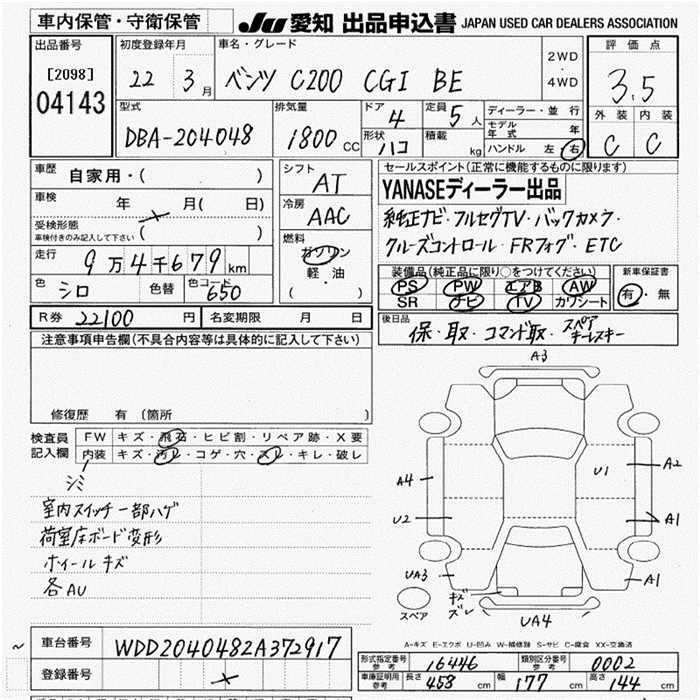 車内保管・守衛保管
JU 愛知 出品申込書 JAPAN USED CAR DEALERS ASSOCIATION
出品番号
[2098]
04143
初度登録年月
22 3月
車名・グレード
ベンツ C200 CGI BE
2WD
・
4WD
評価点
3.5
外装 内装
C C
型式
DBA-204048
排気量
1800 CC
ドア 4
形状 ハコ
定員 5人
積載 kg
ディーラー・並行
モデル年式 年
ハンドル 左 右
車歴
自家用・( )
車検
年 月( 日)
受検形態
車検付きのみ記入して下さい ( )
走行
9万4千679km
色 シロ 色替 色コード 650
シフト
AT
冷房
AAC
燃料
ガソリン
軽・油
( ・ )
セールスポイント(正常に機能するものに限ります)
YANASEディーラー出品
純正ナビ・フルセグTV・バックカメラ・
クルーズコントロール・FRフォグ・ETC
装備品(純正品に限り○をつけてください)
PS PW エアB AW
SR ナビ TV カワシート
新車保証書
有・無
R券 22100 円 名変期限 月 日
後日品
保・取・コマンド取・スペアキーレスキー
注意事項申告欄(不具合内容等は具体的に記入して下さい)
修復歴 有(箇所 )
検査員
記入欄
FW キズ・飛石・ヒビ割・リペア跡・X要
内装 キズ・汚レ・コゲ・穴・スレ・キレ・破レ
シミ
室内スイッチ一部ハゲ
荷室床ボード変形
ホイールキズ
各AU
A3
U1
A2
A4
U2
A1
UA3
A1
キズ
ズレ
UA4
スペア
A-キズ E-エクボ U-凹み W-補修跡 S-サビ C-腐食 XX-交換済
車台番号 WDD2040482A372917
登録番号
形式指定番号 参考 16446 類別区分番号 参考 0002
車庫証明用 参考 長さ 458 cm 幅 177 cm 高さ 144 cm